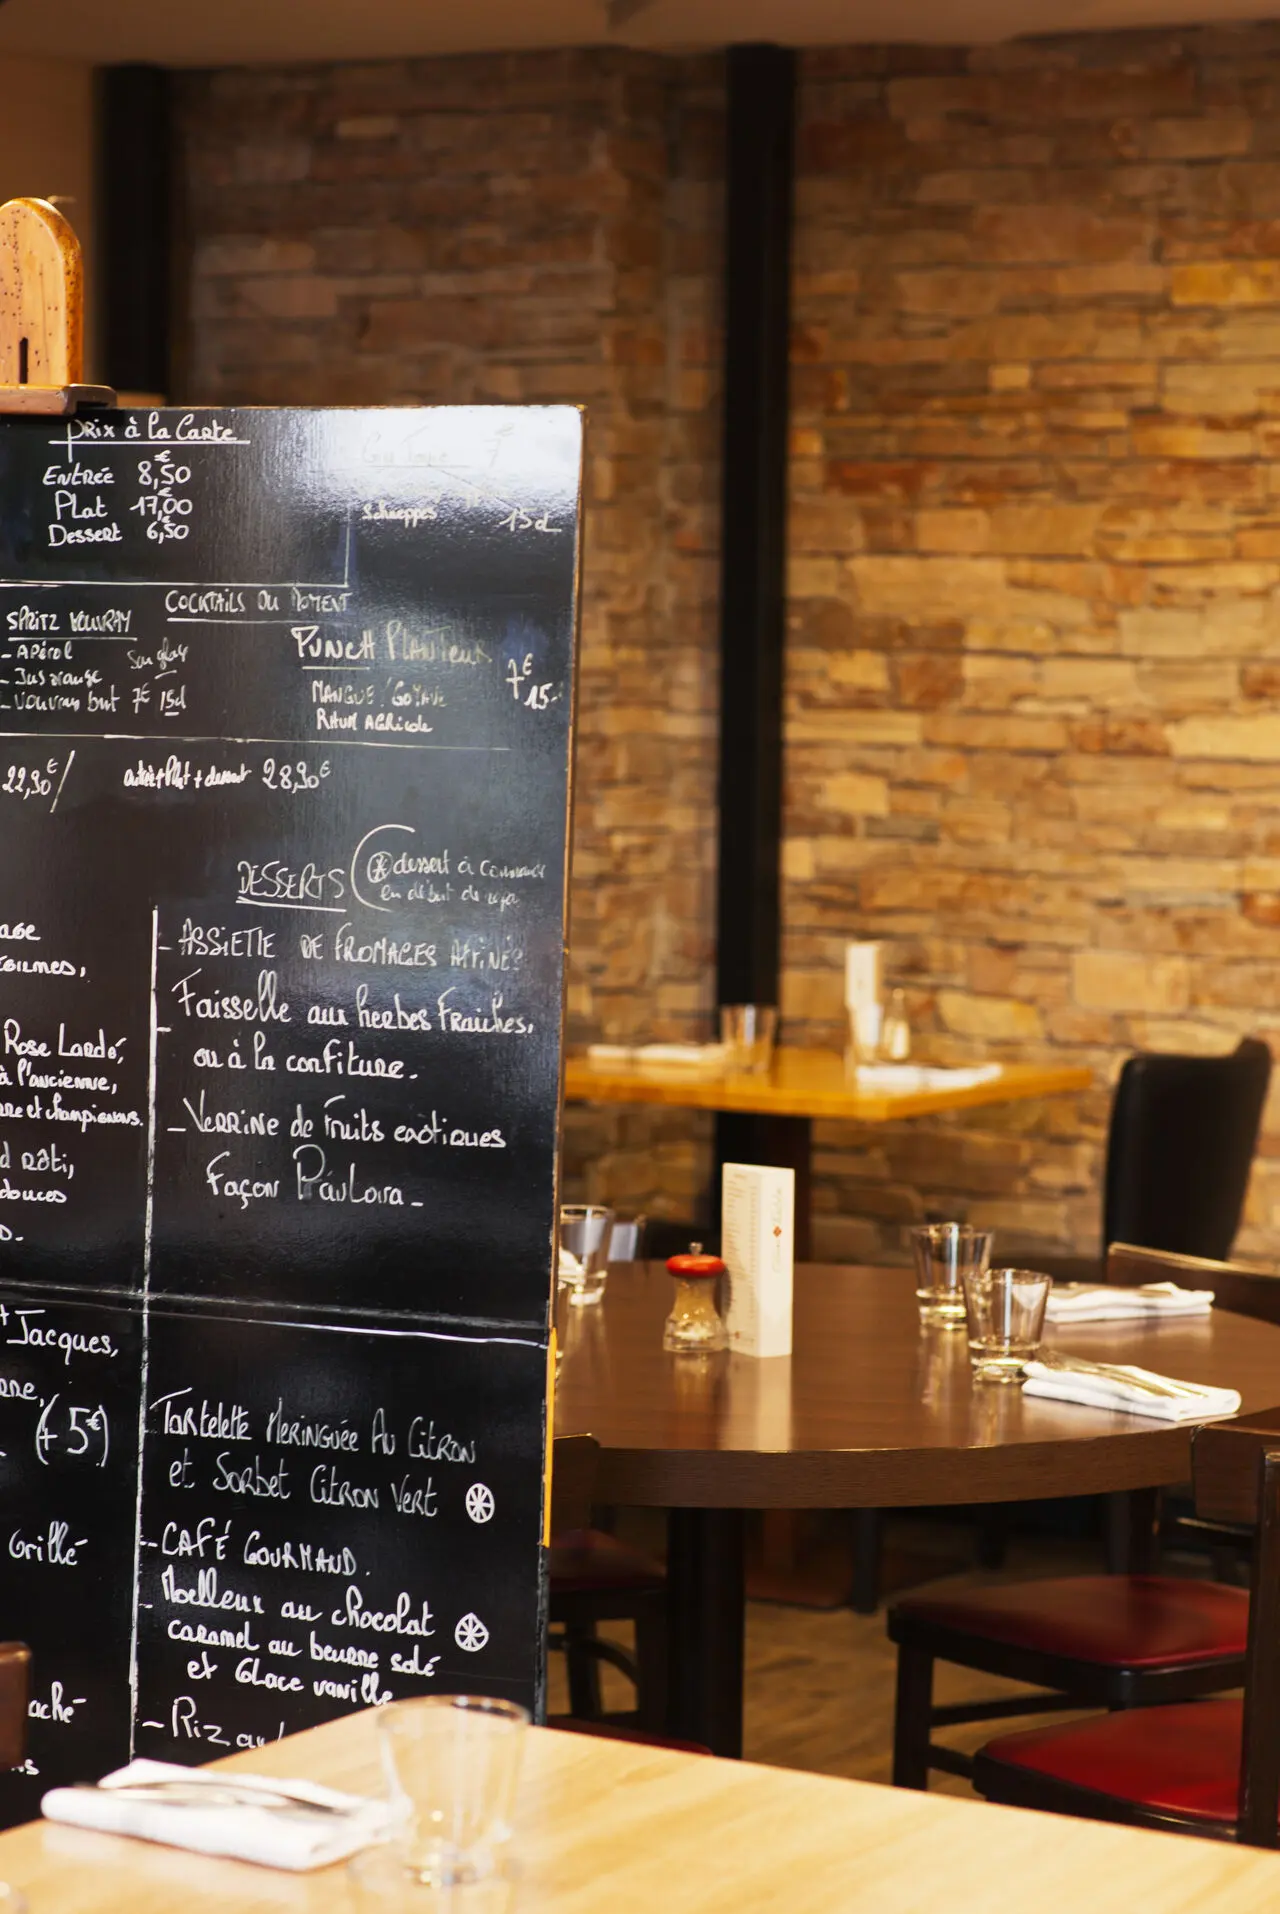 Prix à la Carte
Entrée 8,50 €
Plat 17,00 €
Dessert 6,50
Schweppes 15cl
COCKTAILS DU MOMENT
SPRITZ VOUVRAY
- APérol
- Jus orange
- Vouvray brut 7€ 15cl
PUNCH PLANTEUR
MANGUE GOYAVE
RHUM AGRICOLE
7€ 15
22,90€/ entrée+Plat+dessert 28,90€
DESSERTS
dessert à commande
en début de repas
- ASSIETTE DE FROMAGES AFFINÉS
- Faisselle aux herbes Fraiches,
ou à la confiture.
- Verrine de fruits exotiques
Façon Pavlova -
Rose Lardé,
à l'ancienne,
et champignons.
d Rôti,
douces
Jacques,
(+5€)
Grillé
Tartelette Meringuée Au Citron
et Sorbet Citron Vert
- CAFÉ GOURMAND.
- Moelleux au chocolat
caramel au beurre salé
et Glace vanille
- Riz au